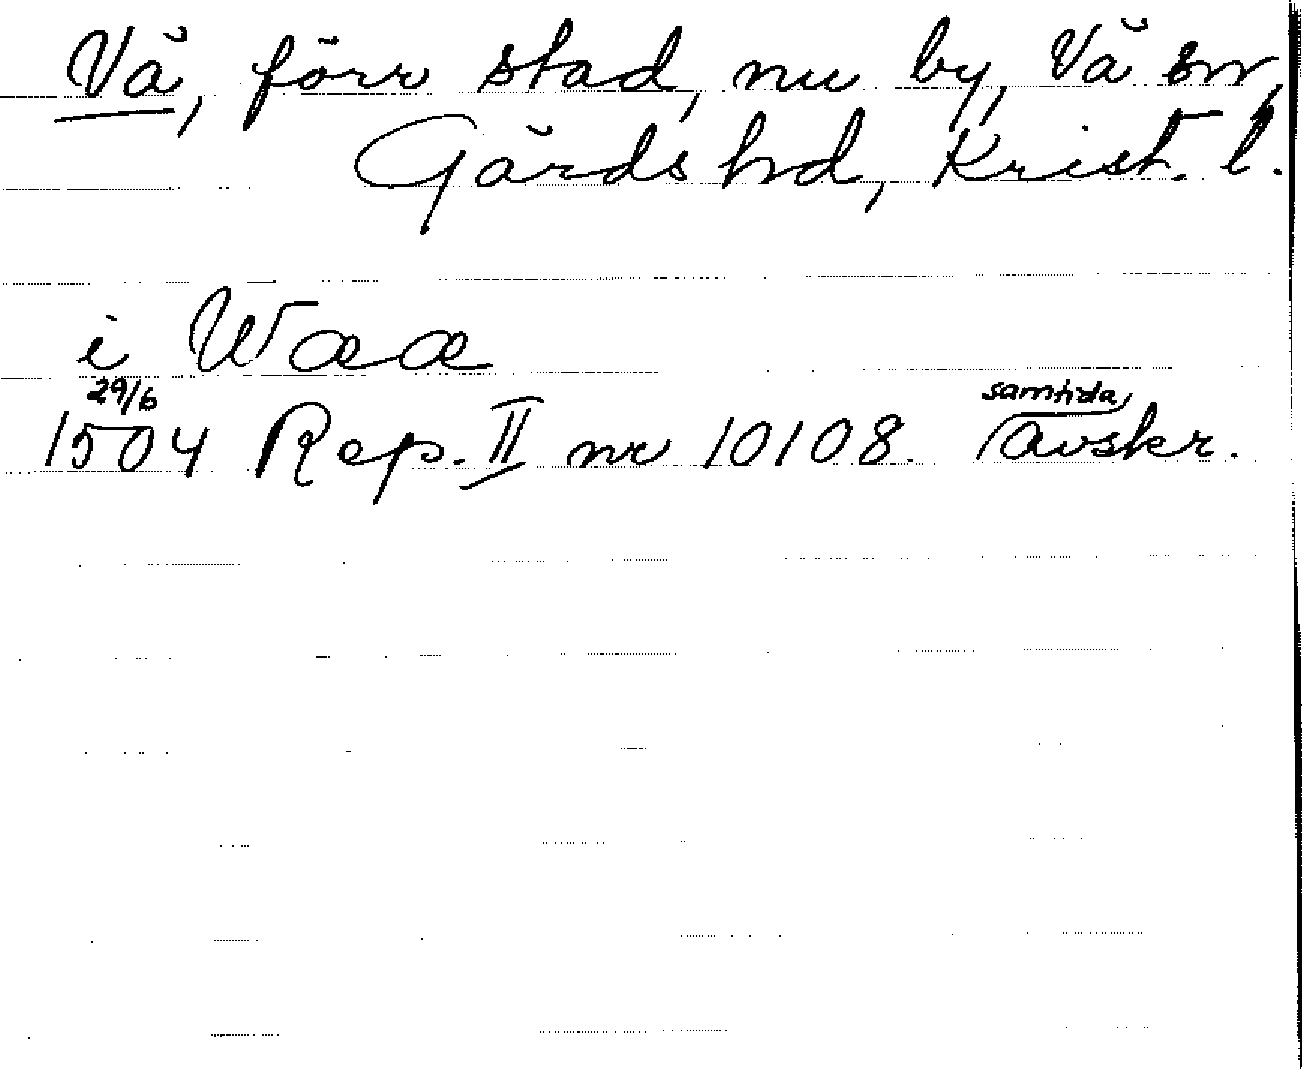 Vå, förr stad, nu by, Vå sn,
Gärds hd, Krist. l.
i Waa
29/6 samtida
1504 Rep. II nr 10108. avskr.